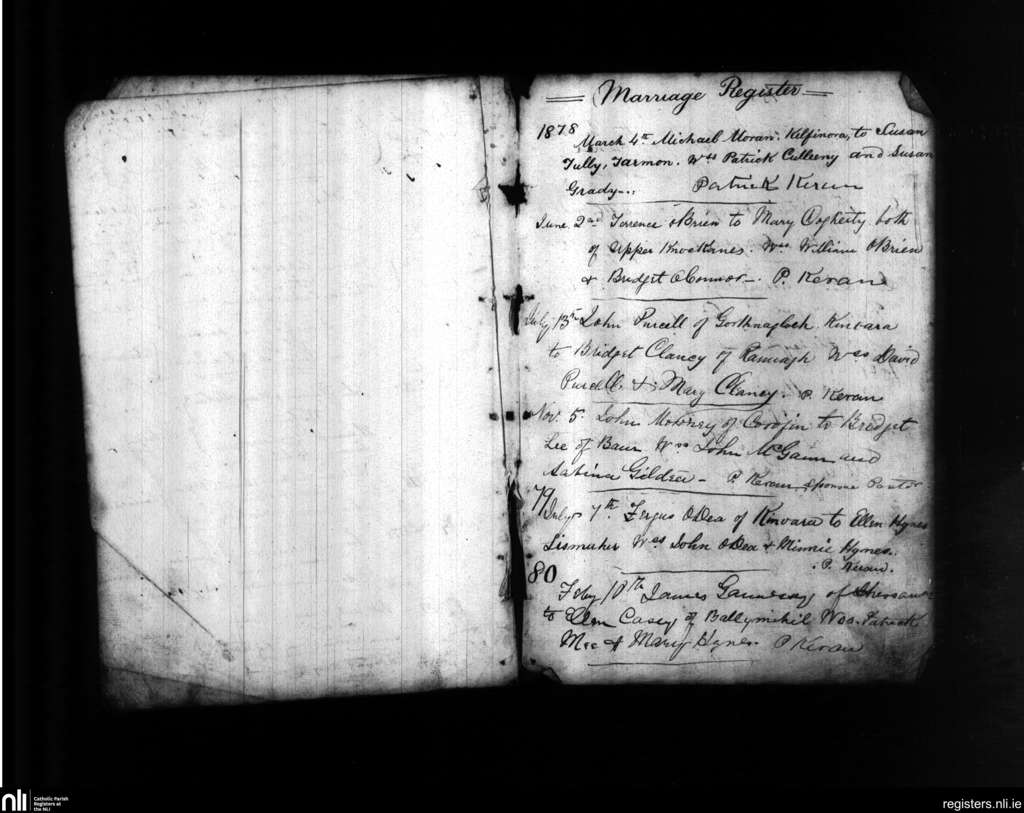 Marriage Register
1878
March 4th Michael Moran. Kilfinora, to Susan
Tully, Tarmon. Wss Patrick Culleeny and Susan
Grady
Patrick Keran
June 2nd Terence OBrien to Mary both
of Upper Knockanes. Wss William OBrien
& Bridget OConnor P. Keran
July 13th John Purcill of Kinvara
to Bridget Clancy of Wss David
Purcill & Mary Clancy. P. Keran
Nov. 5. John of Corofin to Bridget
Lee of Baur Wss John McGann and
Sabina Gildea - P. Keran
79
July 7th. Fergus ODea of Kinvara to Ellen Hynes
Wss John ODea & Minnie Hynes.
P. Keran.
80
Feby 10th James of
to Ellen Casey of Ballymihil Wss. Patrick
& Mary Hynes. P Keran
nli
Catholic Parish
Registers at
the NLI
registers.nli.ie